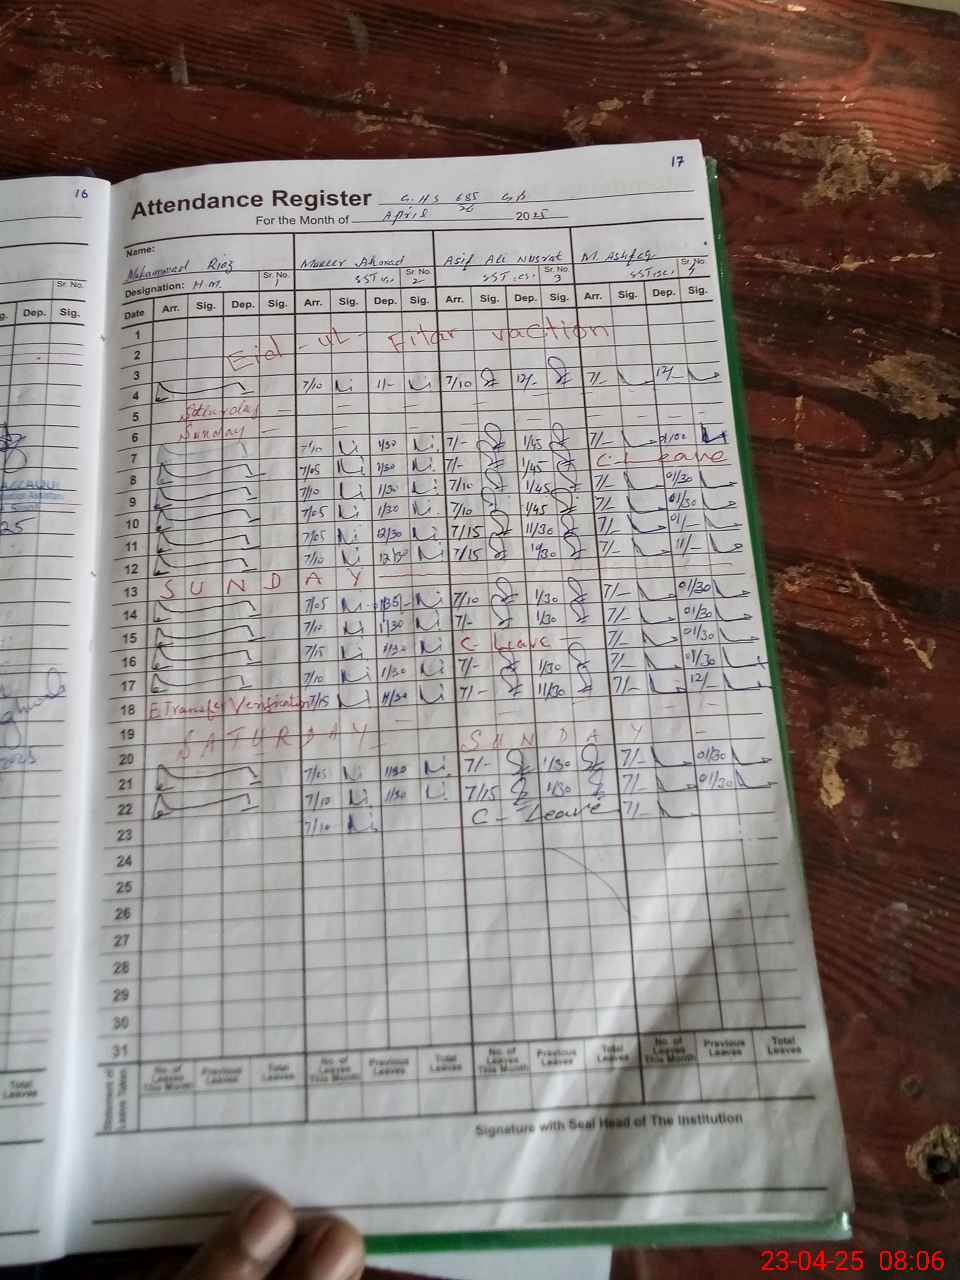 16
17
Attendance Register G.H.S 685/26 GB
For the Month of April 2025
Name:
Mohammad Riaz Muneer Ahmad Asif Ali Nusrat M. Ashfaq
Designation: H.M. Sr. No. 1 SST Sr. No. 2 SST Sr. No. 3 SST Sr. No. 4
Date Arr. Sig. Dep. Sig. Arr. Sig. Dep. Sig. Arr. Sig. Dep. Sig. Arr. Sig. Dep. Sig.
1
2 Eid - ul - Fitar vaction
3
4 7/10 1/- 7/10 12/- 7/- 12/-
5 Saturday
6 Sunday
7 7/10 1/30 7/- 1/45 7/-
8 7/05 1/30 7/- 1/45 C-Leave
9 7/10 1/30 7/10 1/45 7/- 01/30
10 7/05 1/30 7/10 1/45 7/- 01/30
11 7/05 12/30 7/15 11/30 7/- 01/-
12 7/10 12/30 7/15 1/30 7/- 11/-
13 SUNDAY
14 7/05 7/10 1/30 7/- 01/30
15 7/10 1/30 7/- 1/30 7/- 01/30
16 7/15 1/30 C-Leave 7/- 01/30
17 7/10 1/30 7/- 1/30 7/- 01/30
18 E Transfer Verification 7/15 11/30 7/- 11/30 7/- 12/-
19
20 SATURDAY SUNDAY
21 7/05 1/30 7/- 1/30 7/- 01/30
22 7/10 1/30 7/15 1/30 7/- 01/30
23 7/10 C-Leave 7/-
24
25
26
27
28
29
30
31
Statement of Leave Taken No. of Leaves This Month Previous Leaves Total Leaves No. of Leaves This Month Previous Leaves Total Leaves No. of Leaves This Month Previous Leaves Total Leaves No. of Leaves This Month Previous Leaves Total Leaves
Signature with Seal Head of The Institution
Sr. No.
Dep. Sig.
25
Total Leaves
23-04-25 08:06